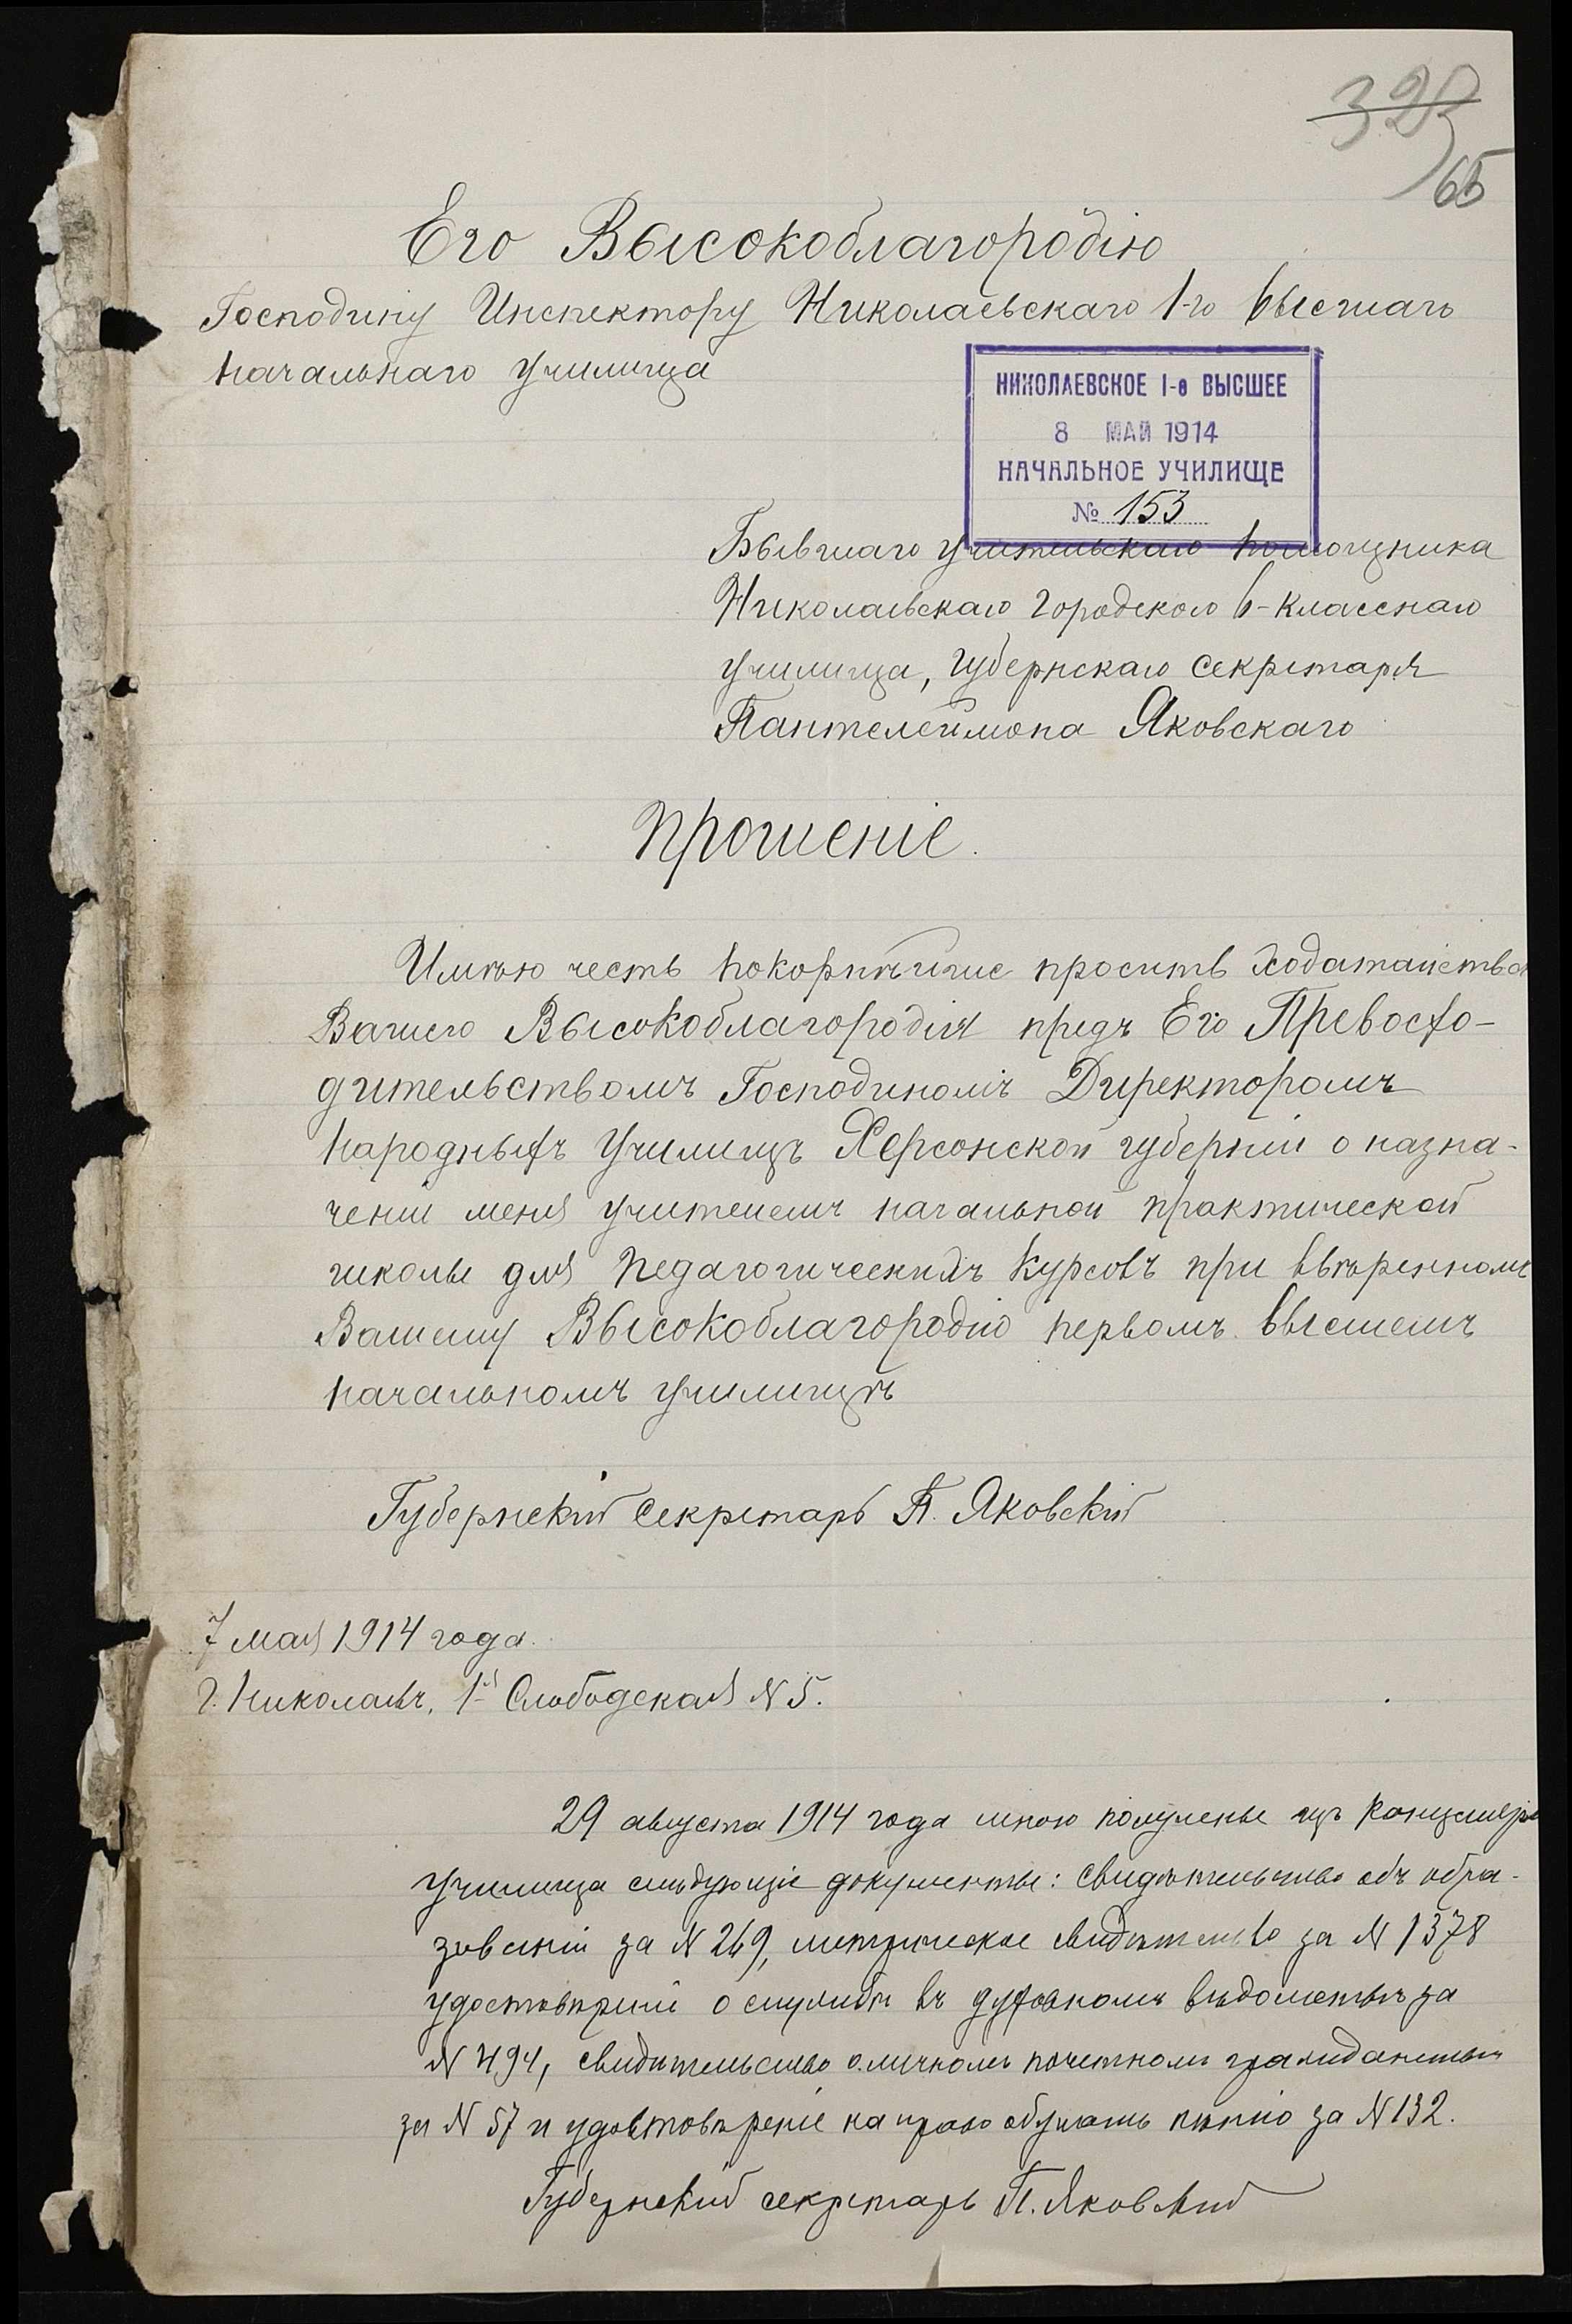 323
65
Его Высокоблагородію
Господину Инспектору Николаевскаго 1-го высшаго
начальнаго училища
НИКОЛАЕВСКОЕ I-е ВЫСШЕЕ
8 МАЙ 1914
НАЧАЛЬНОЕ УЧИЛИЩЕ
№ 153
Бывшаго учительскаго помощника
Николаевскаго городского 6-классного
училища, губернскаго секретаря
Пантелеймона Яковскаго
Прошеніе.
Имѣю честь покорнѣйше просить ходатайства
Вашего Высокоблагородія предъ Его Превосхо-
дительствомъ Господиномъ Директоромъ
народныхъ училищъ Херсонской губерніи о назна-
ченіи меня учителемъ начальной практической
школы для педагогическихъ курсовъ при ввѣренномъ
Вашему Высокоблагородію первомъ высшемъ
начальномъ училищѣ
Губернскій секретарь П. Яковскій
7 мая 1914 года.
г. Николаевъ, 1-я Слободская N 5.
29 августа 1914 года мною получены изъ канцеляріи
училища слѣдующіе документы: свидѣтельство объ обра-
зованіи за N 269, метрическое свидѣтельство за N 1378
удостовѣреніе о службѣ въ духовномъ вѣдомствѣ за
N 494, свидѣтельство о личномъ почетномъ гражданствѣ
за N 57 и удостовѣреніе на право обучать пѣнію за N 132.
Губернскій секретарь П. Яковскій